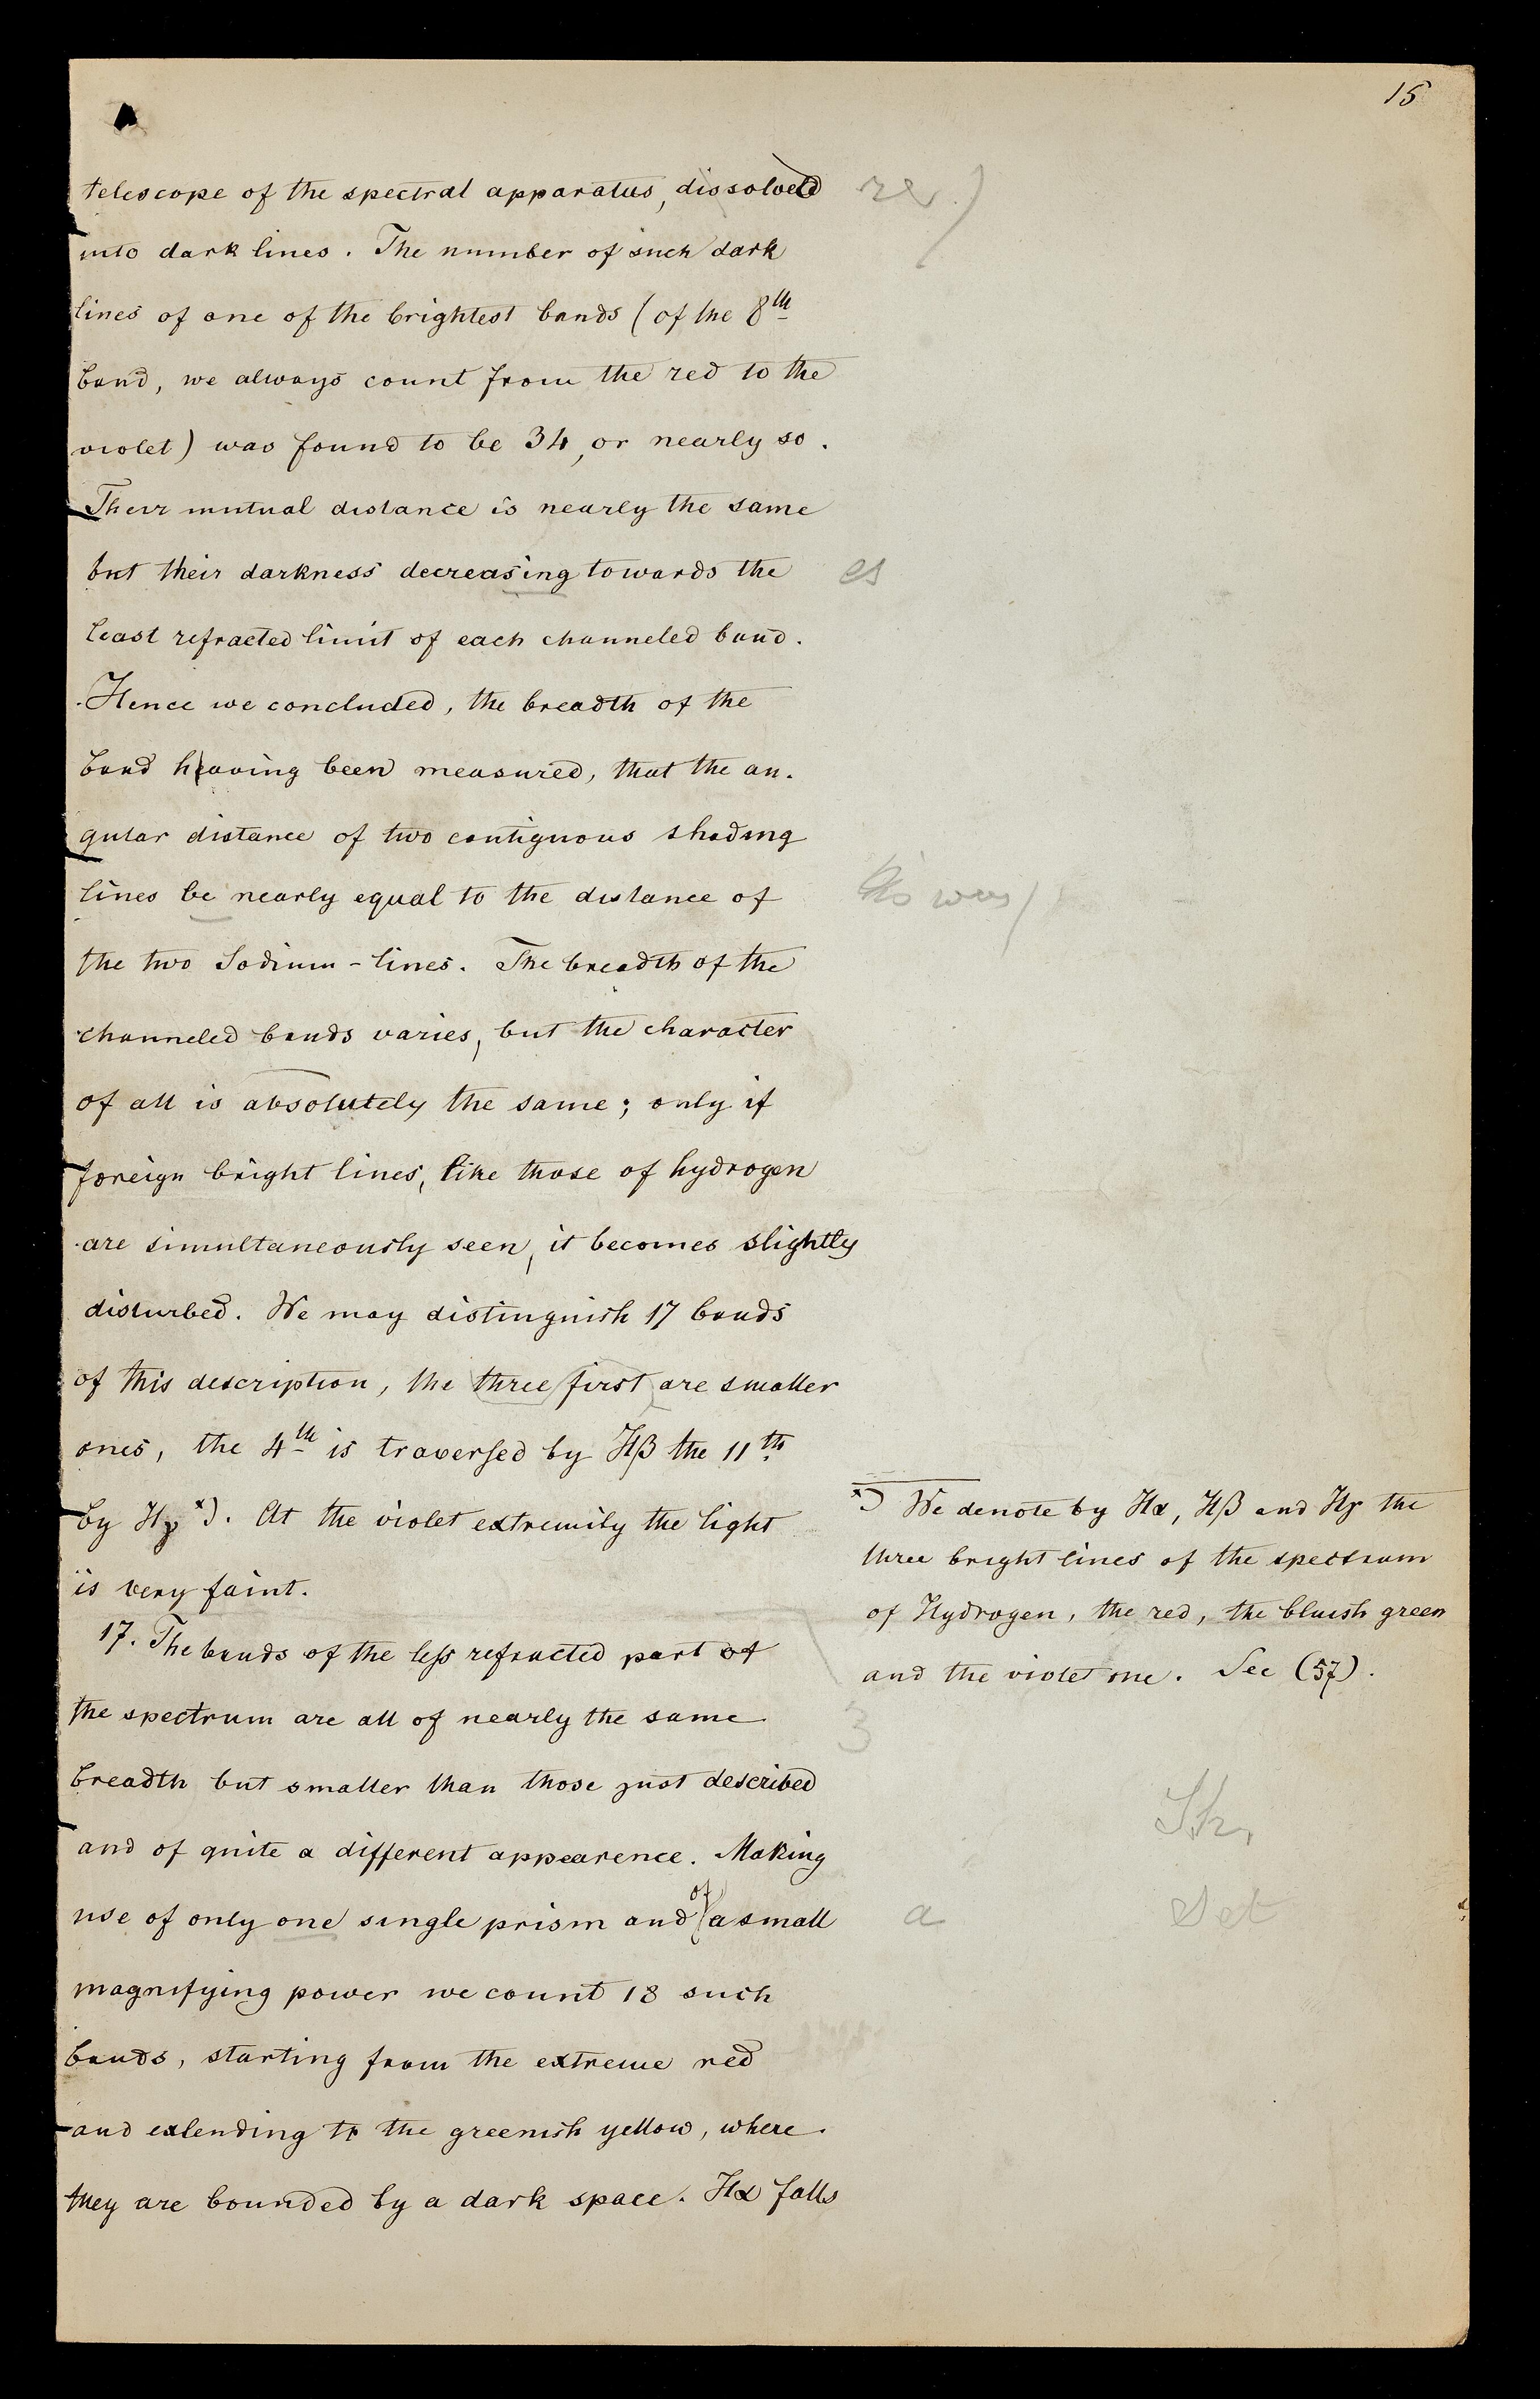 15
telescope of the spectral apparatus, dissolved
into dark lines. The number of such dark
lines of one of the brightest bands (of the 8th
band, we always count from the red to the
violet) was found to be 34, or nearly so.
Their mutual distance is nearly the same
but their darkness decreasing towards the
es
least refracted limit of each channeled band.
Hence we concluded, the breadth of the
band having been measured, that the an-
gular distance of two contiguous shading
lines be nearly equal to the distance of
the two Sodium-lines. The breadth of the
channeled bands varies, but the character
of all is absolutely the same; only if
foreign bright lines, like those of hydrogen
are simultaneously seen, it becomes slightly
disturbed. We may distinguish 17 bands
of this description, the three first are smaller
ones, the 4th is traversed by Hβ the 11th
by Hγ x). At the violet extremity the light
is very faint.
x) We denote by Hα, Hβ and Hγ the
three bright lines of the spectrum
of Hydrogen, the red, the bluish green
and the violet one. See (57).
17. The bands of the less refracted part of
the spectrum are all of nearly the same
3
breadth but smaller than those just described
and of quite a different appearence. Making
use of only one single prism and of a small
a
magnifying power we count 18 such
bands, starting from the extreme red
and extending to the greenish yellow, where
they are bounded by a dark space. Hα falls